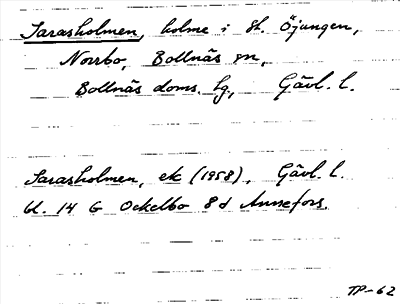 Sarasholmen, holme i sk. Öjungen,
Norrbo, Bollnäs sn,
Bollnäs doms. lg, Gävl. l.
Sarasholmen, ek (1958), Gävl. l.
bl. 14 G Ockelbo 8d Annefors.
TP-62